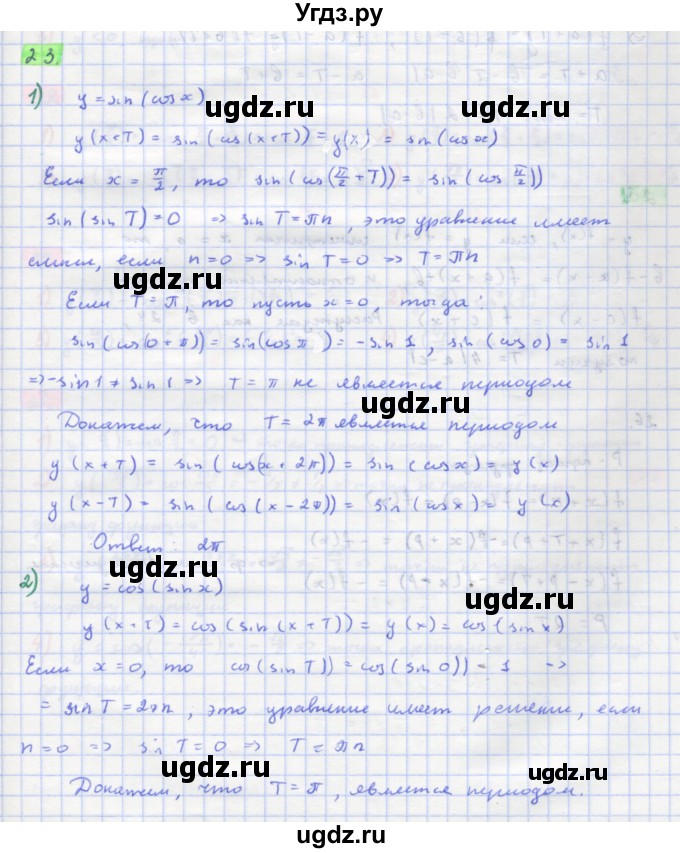 Угдз.ру
23.
1) y = sin (cos x)
ugdz.ru ugdz.ru
y (x+T) = sin (cos (x+T)) = y(x) = sin (cos x)
Если x = π/2, то sin (cos(π/2 + T)) = sin (cos π/2))
ugdz.ru ugdz.ru
sin (sin T) = 0 => sin T = πn, это уравнение имеет
смысл, если n = 0 => sin T = 0 => T = πn
ugdz.ru
Если T = π, то пусть x = 0, тогда:
ugdz.ru
sin (cos(0 + π)) = sin(cos π) = - sin 1, sin (cos 0) = sin 1
=> -sin 1 ≠ sin 1 => T = π не является периодом
ugdz.ru ugdz.ru
Докажем, что T = 2π является периодом
y (x + T) = sin (cos(x + 2π)) = sin (cos x) = y (x)
ugdz.ru
y (x - T) = sin (cos (x - 2π)) = sin (cos x) = y (x)
ugdz.ru
Ответ: 2π
ugdz.ru
2) y = cos (sin x)
ugdz.ru
y (x + T) = cos (sin (x + T)) = y (x) = cos (sin x)
Если x = 0, то cos (sin T)) = cos (sin 0)) = 1 =>
ugdz.ru ugdz.ru
= sin T = 2πn, это уравнение имеет решение, если
n = 0 => sin T = 0 => T = πn
ugdz.ru
Докажем, что T = π, является периодом.
ugdz.ru
ugdz.ru